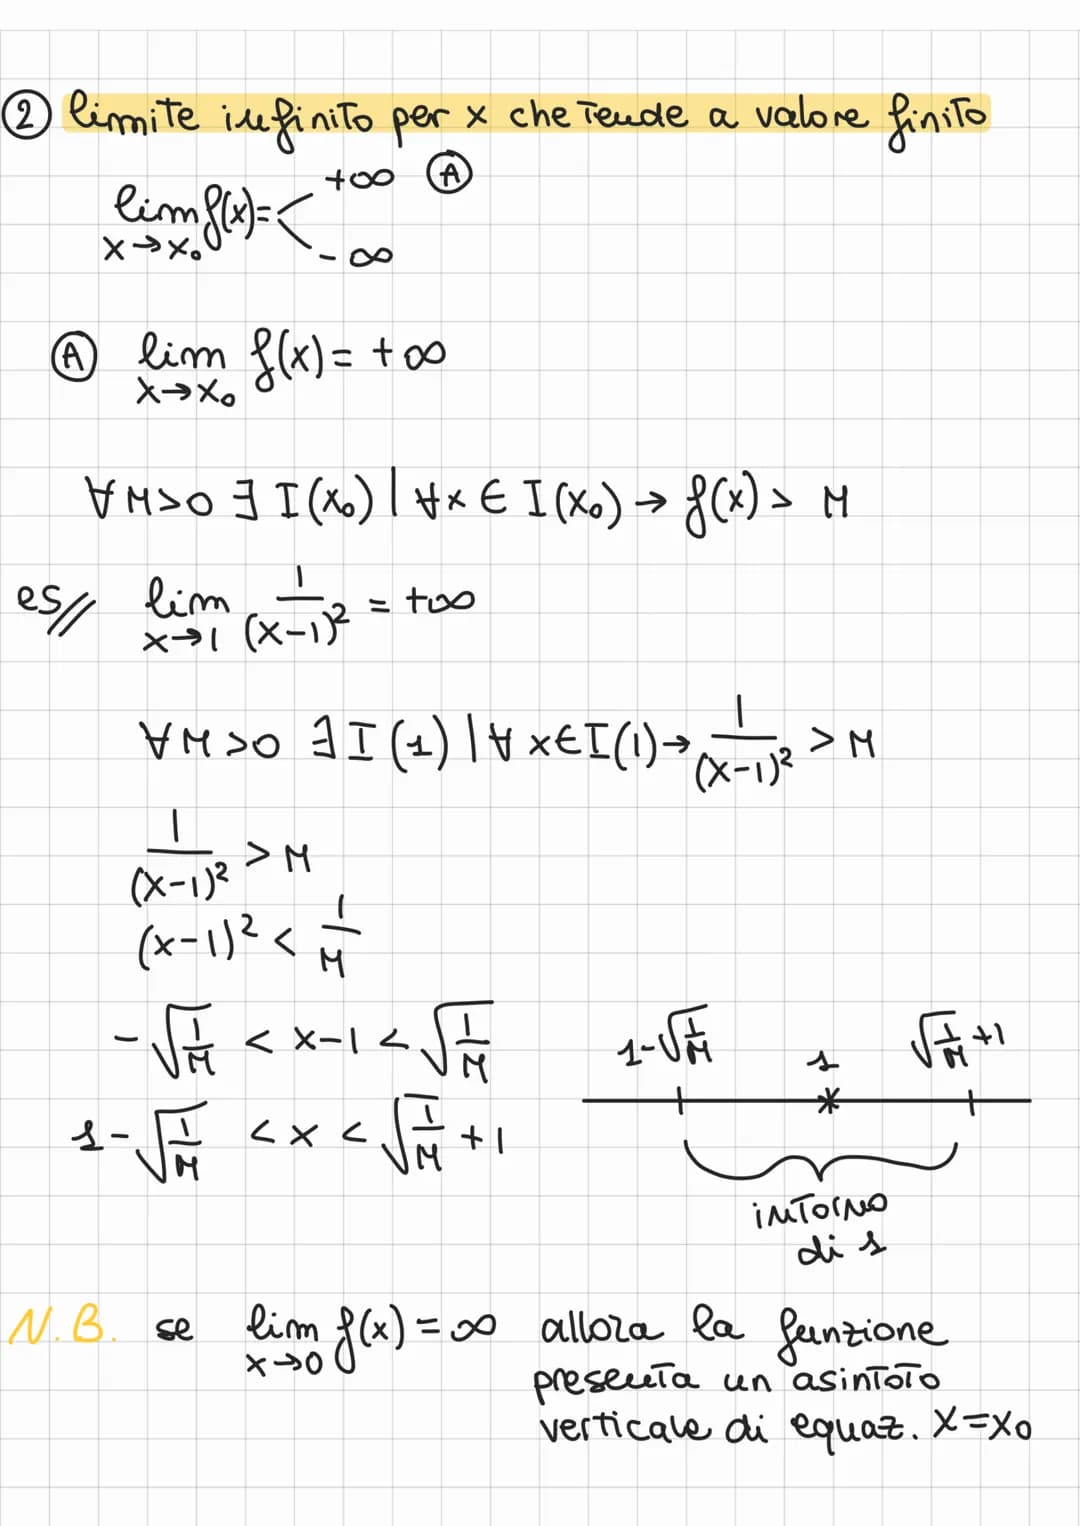 ② limite infinito per x che tende a valore finito
lim f(x) = < +∞ Ⓐ
x→x₀ - ∞
Ⓐ lim f(x) = +∞
x→x₀
∀ M>0 ∃ I(x₀) | ∀x ∈ I(x₀) → f(x) > M
es// lim 1/(x-1)² = +∞
x→1
∀ M>0 ∃ I(1) | ∀ x∈I(1) → 1/(x-1)² > M
1/(x-1)² > M
(x-1)² < 1/M
-√(1/M) < x-1 < √(1/M)
1-√(1/M) < x < √(1/M) +1
1-√(1/M) 1 √(1/M) +1
intorno
di 1
N.B. se lim f(x) = ∞ allora la funzione
x→0
presenta un asintoto
verticale di equaz. x=x₀